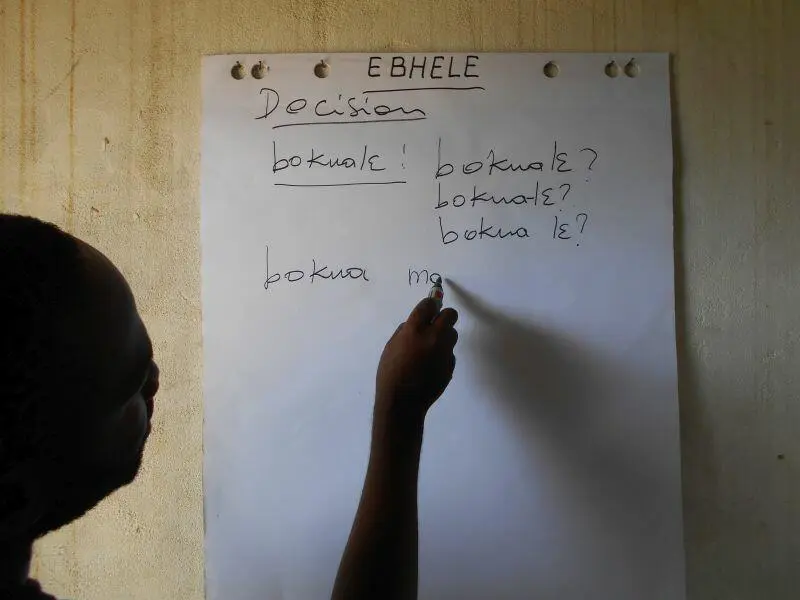 EBHELE
Decision
bokuale: bokualɛ?
bokua-lɛ?
bokua lɛ?
bokua ma